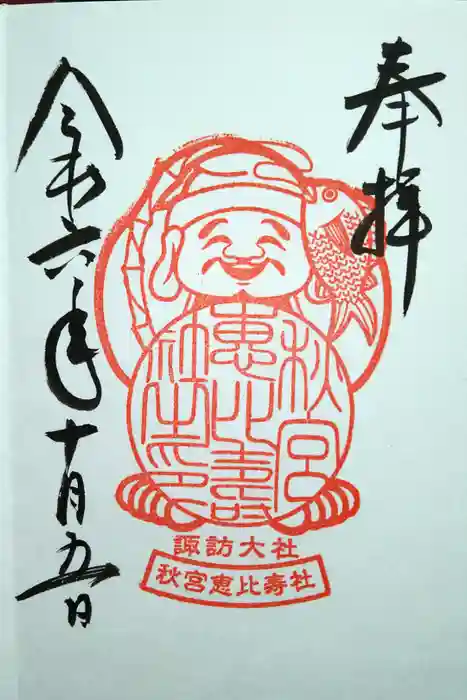 奉拝
秋宮
恵比壽
社之印
諏訪大社
秋宮恵比寿社
令和六年十月五日